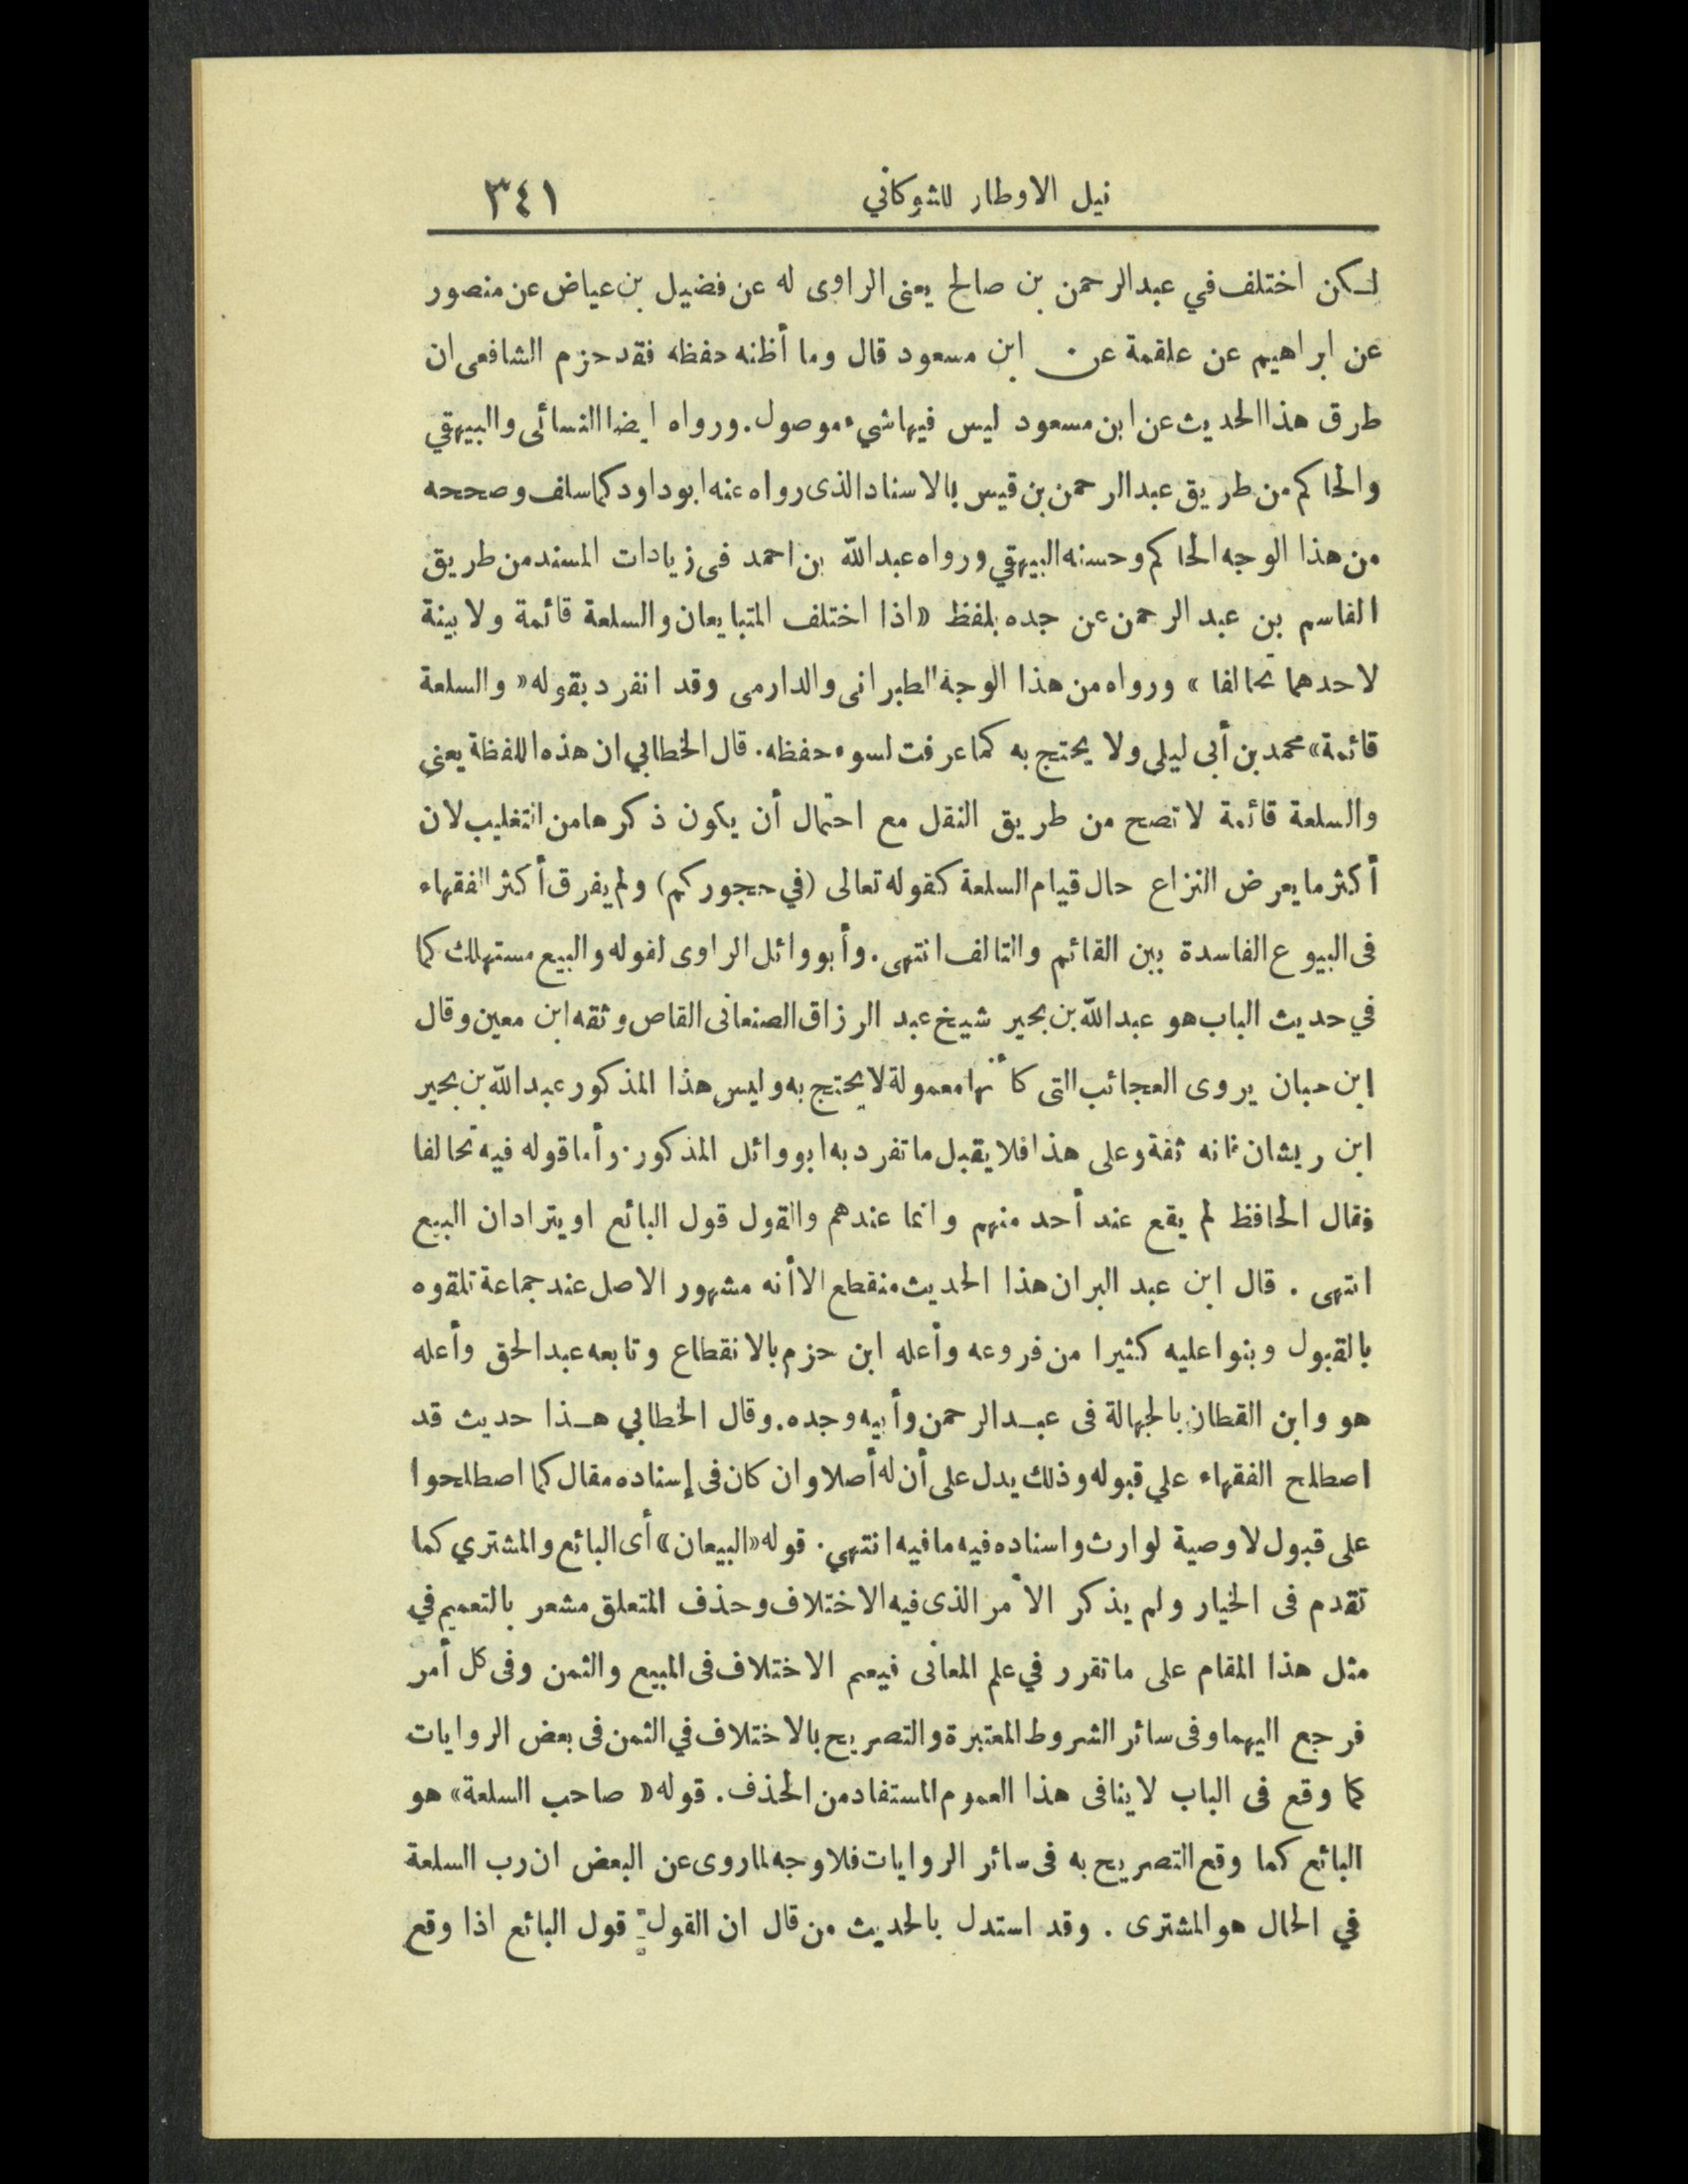 نيل الاوطار للشوكاني ٣٤١
لـكن اختلف في عبدالرحمن بن صالح يعنى الراوى له عن فضيل بن عياض عن منصور
عن ابراهيم عن علقمة عن ابن مسعود قال وما أظنه حفظه فقد جزم الشافعى ان
طرق هذا الحديث عن ابن مسعود ليس فيها شيء موصول. ورواه ايضا النسائى والبيهقي
والحاكم من طريق عبدالرحمن بن قيس بالاسناد الذى رواه عنه ابو داود كما سلف وصححه
من هذا الوجه الحاكم وحسنه البيهقي ورواه عبدالله بن احمد فى زيادات المسند من طريق
القاسم بن عبد الرحمن عن جده بلفظ «اذا اختلف المتبايعان والسلعة قائمة ولا بينة
لاحدهما تحالفا» ورواه من هذا الوجه الطبرانى والدارمى وقد انفرد بقوله «والسلعة
قائمة» محمد بن أبى ليلى ولا يحتج به كما عرفت لسوء حفظه. قال الخطابي ان هذه اللفظة يعنى
والسلعة قائمة لا تصح من طريق النقل مع احتمال أن يكون ذكرها من التغليب لان
أكثر ما يعرض النزاع حال قيام السلعة كقوله تعالى (في حجوركم) ولم يفرق أكثر الفقهاء
فى البيوع الفاسدة بين القائم والتالف انتهى. وأبو وائل الراوى لقوله والبيع مستهلك كما
في حديث الباب هو عبدالله بن بحير شيخ عبد الرزاق الصنعانى القاص وثقه ابن معين وقال
ابن حبان يروى العجائب التى كأنها معمولة لا يحتج به وليس هذا المذكور عبدالله بن بحير
ابن ريشان فانه ثقة وعلى هذا فلا يقبل ما تفرد به ابو وائل المذكور. وأما قوله فيه تحالفا
فقال الحافظ لم يقع عند أحد منهم وانما عندهم والقول قول البائع او يترادان البيع
انتهى. قال ابن عبد البر ان هذا الحديث منقطع الا أنه مشهور الاصل عند جماعة تلقوه
بالقبول وبنوا عليه كثيرا من فروعه وأعله ابن حزم بالانقطاع وتابعه عبدالحق وأعله
هو وابن القطان بالجهالة فى عبـدالرحمن وأبيه وجده. وقال الخطابي هـذا حديث قد
اصطلح الفقهاء علي قبوله وذلك يدل على أن له أصلا وان كان فى إسناده مقال كما اصطلحوا
على قبول لا وصية لوارث واسناده فيه ما فيه انتهي. قوله «البيعان» أى البائع والمشتري كما
تقدم فى الخيار ولم يذكر الأمر الذى فيه الاختلاف وحذف المتعلق مشعر بالتعميم في
مثل هذا المقام على ما تقرر في علم المعانى فيعم الاختلاف فى المبيع والثمن وفى كل أمر
فرجع اليهما وفى سائر الشروط المعتبرة والتصريح بالاختلاف في الثمن فى بعض الروايات
كما وقع فى الباب لا ينافى هذا العموم المستفاد من الحذف. قوله «صاحب السلعة» هو
البائع كما وقع التصريح به فى سائر الروايات فلا وجه لما روى عن البعض ان رب السلعة
في الحال هو المشترى. وقد استدل بالحديث من قال ان القول قول البائع اذا وقع